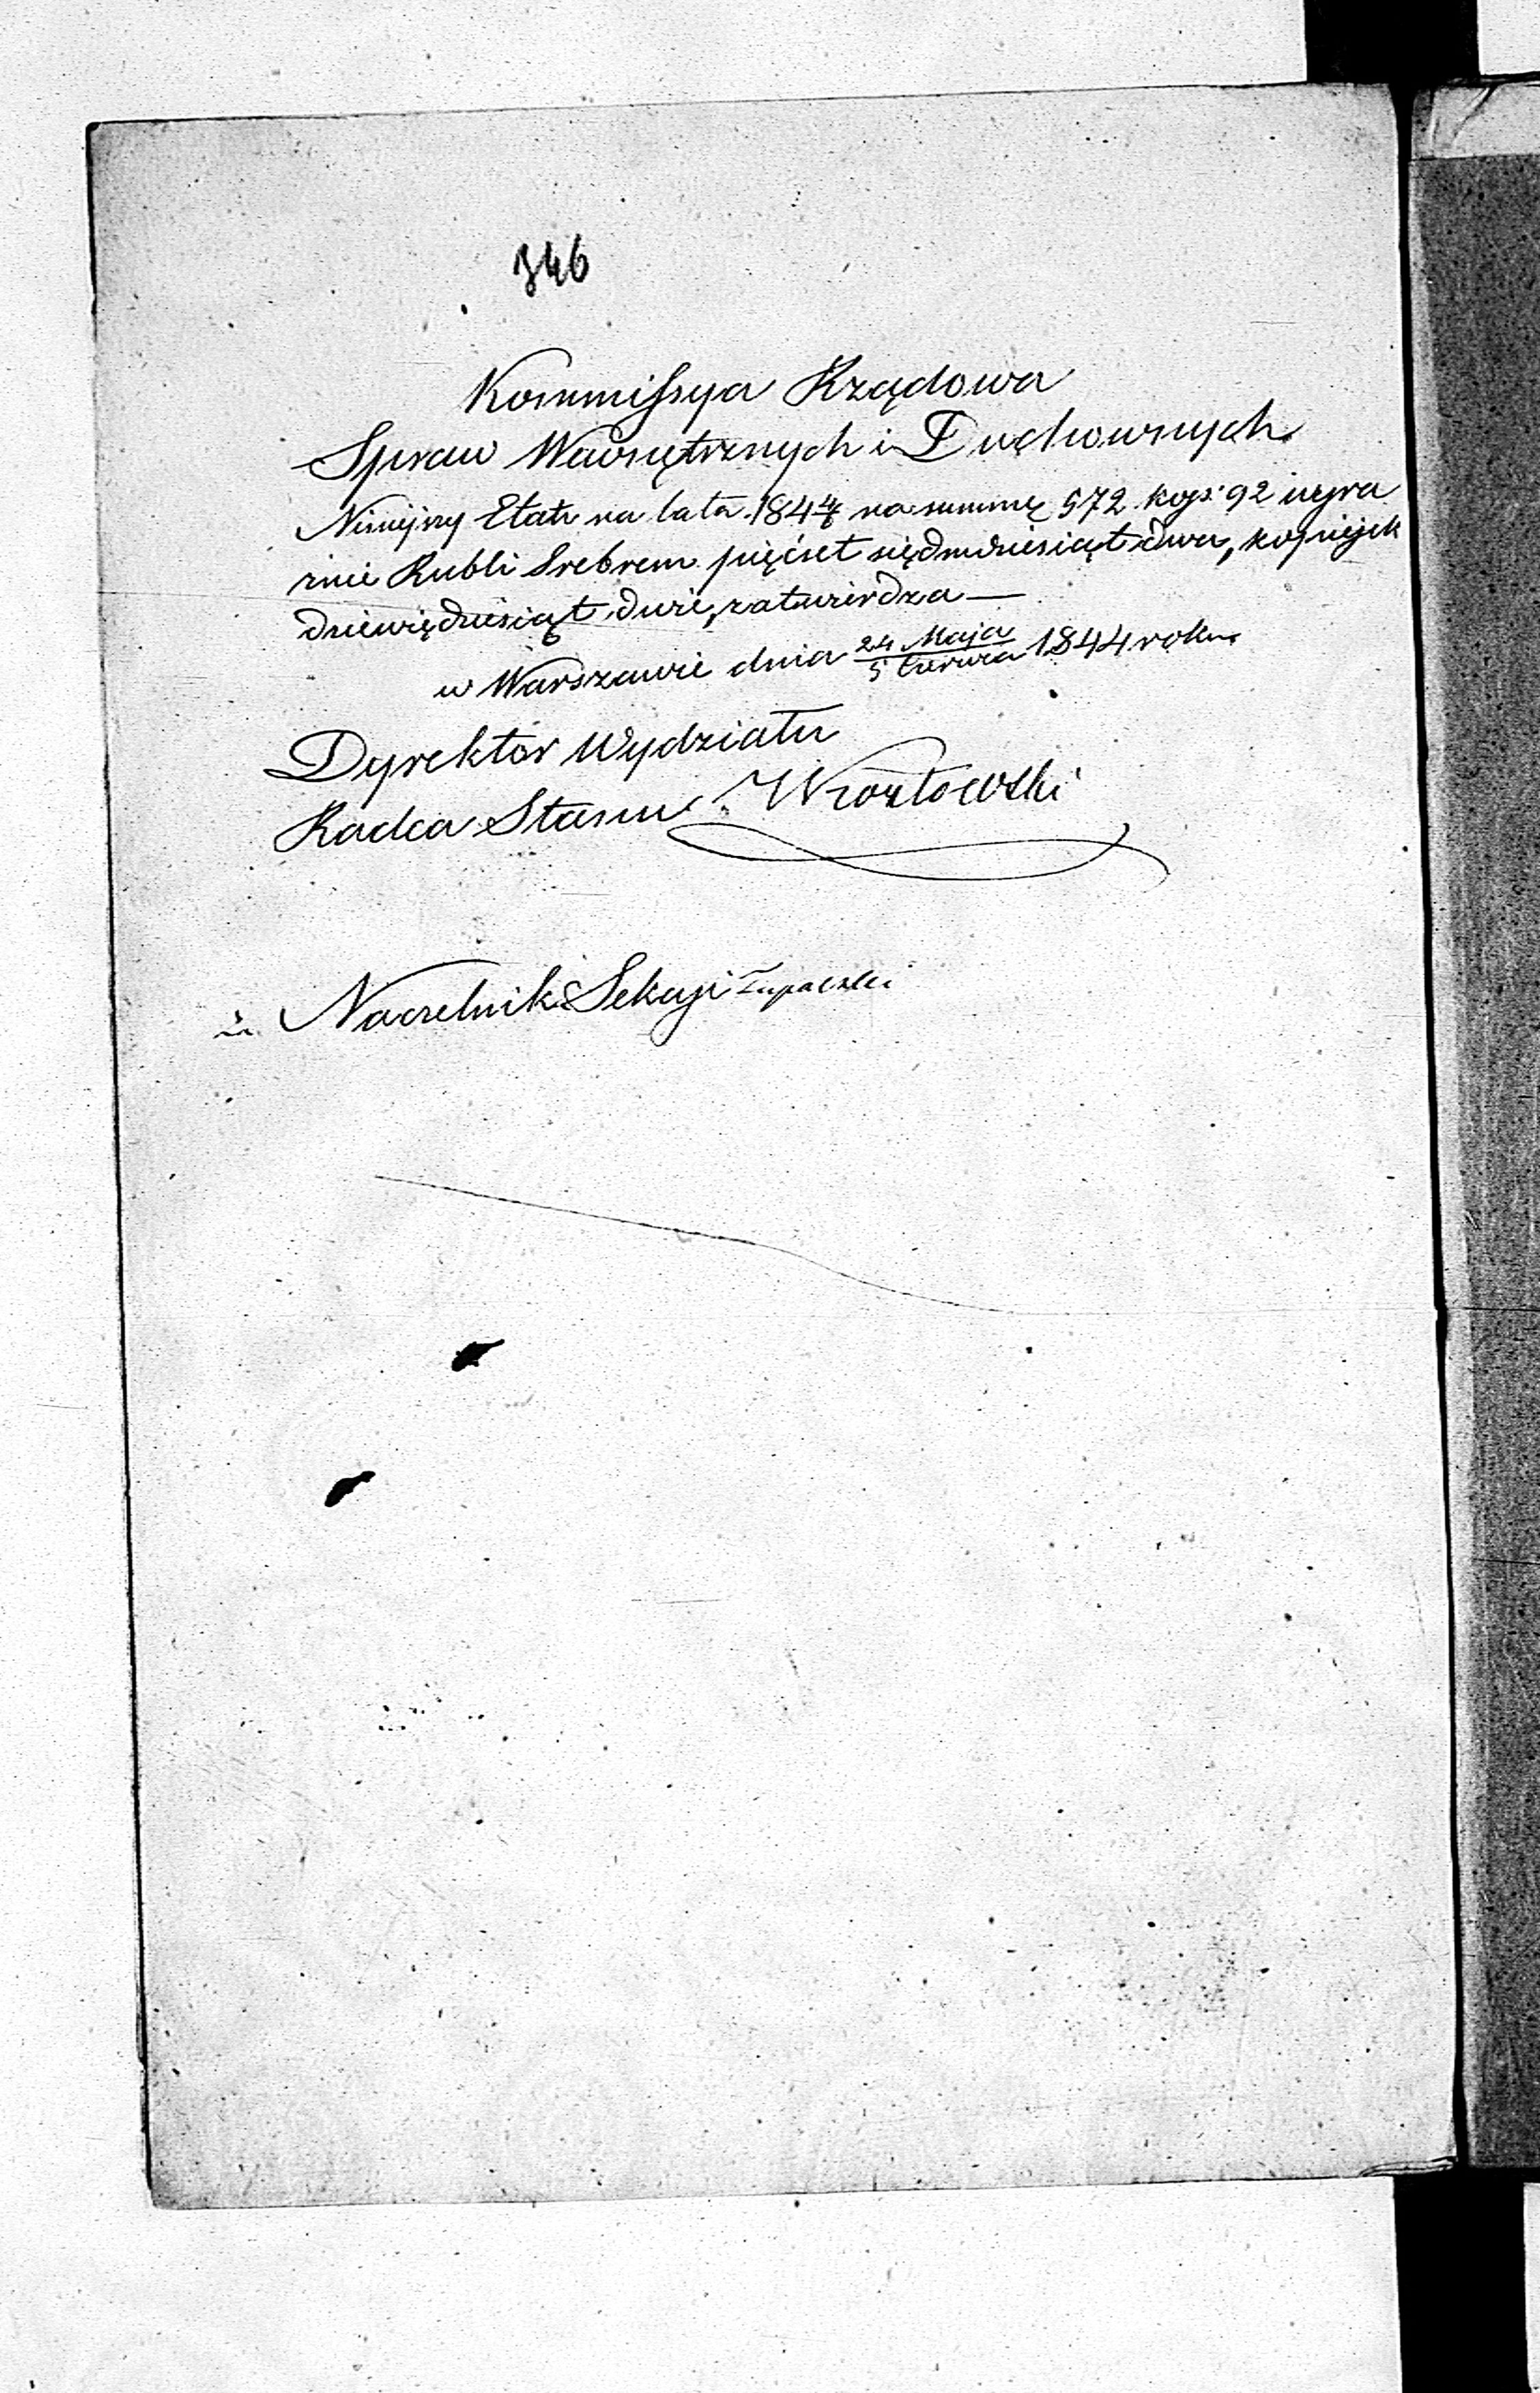 346
Kommissya Rządowa
Spraw Wewnętrznych i Duchownych
Niniejszy Etat na lata 1844/7 na summę 572 kop: 92 wyra
źnie Rubli Srebrem pięćset siedmdziesiąt dwa, kopiejek
dziewięćdziesiąt dwie, zatwierdza —
w Warszawie dnia 24 Maja / 5 Czerwca 1844 roku.
Dyrektor Wydziału
Radca Stanu
Naczelnik Sekcyi